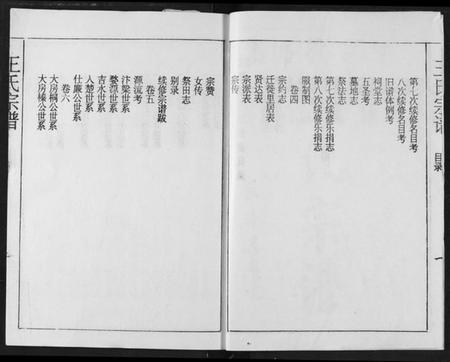 王氏宗谱
目录
一
第七次续修名目考
八次续修名目考
旧谱体例考
祠堂志
五圣考
墓地志
祭法志
第七次续修乐捐志
第八次续修乐捐志
服制图
卷四
宗约志
迁徙里居表
贤达表
宗派表
宗传
宗赞
女传
祭田志
别录
续修宗谱跋
卷五
源流考
汴梁世系
婺源世系
吉水世系
入楚世系
仕廉公世系
卷六
大房桐公世系
大房榛公世系
王氏宗谱